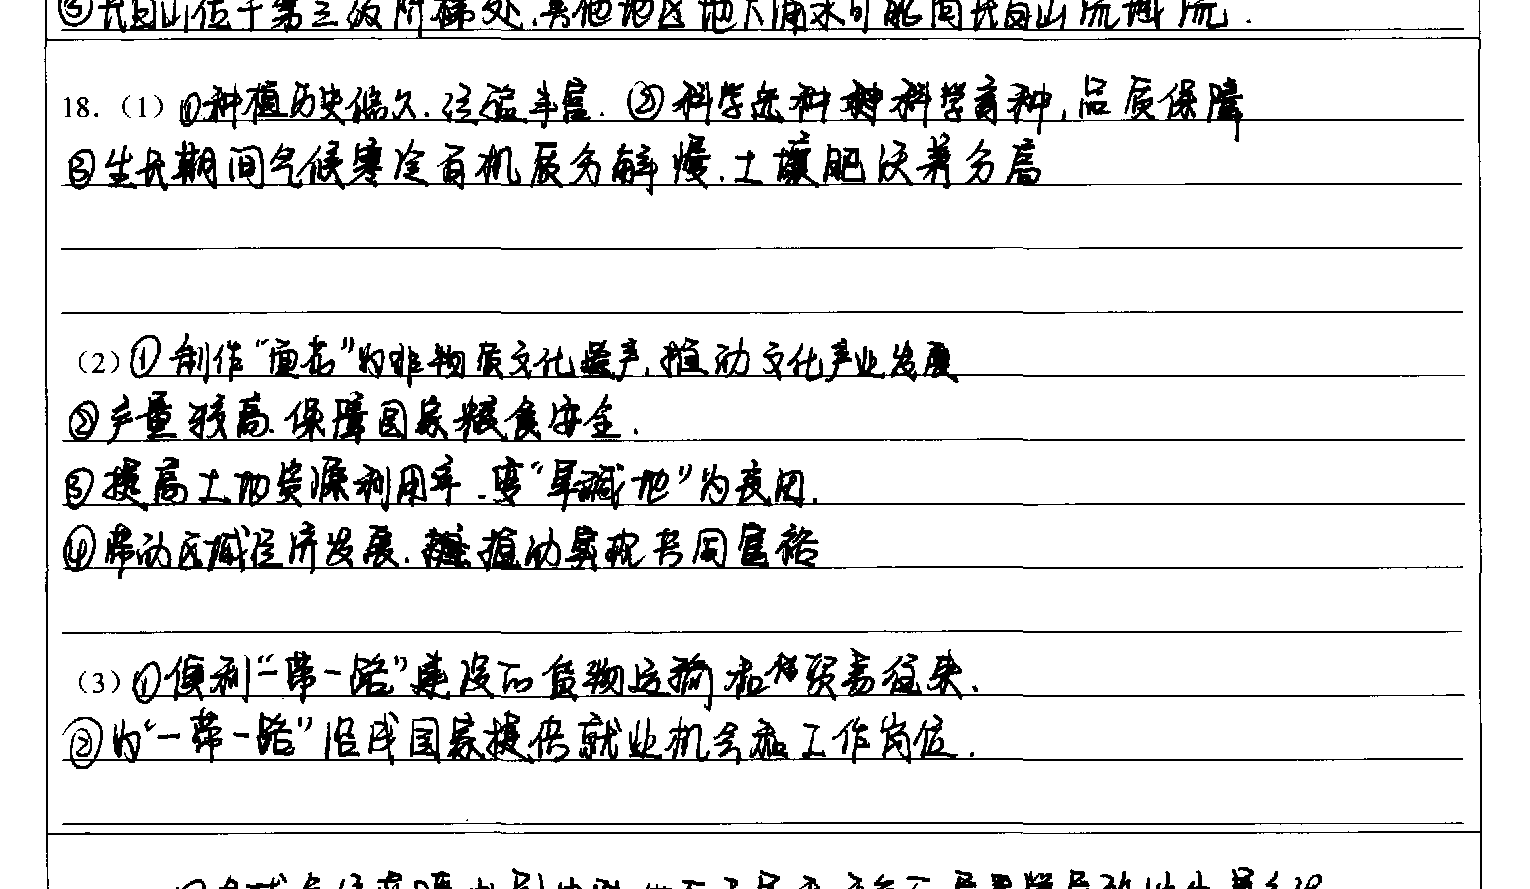 ③长白山位于第三级阶梯处,其他地区地下涌水可能向长白山流域流.
18.（1）①种植历史悠久.经验丰富. ②科学选种 科学育种,品质保障
③生长期间气候寒冷有机质分解慢.土壤肥沃养分高
（2）①制作“面 ”为非物质文化遗产,推动文化产业发展
②产量较高.保障国家粮食安全.
③提高土地资源利用率.变“旱碱地”为良田.
④带动区域经济发展.推动实现共同富裕
（3）①便利“一带一路”建设的货物运输和贸易往来.
②为“一带一路”沿线国家提供就业机会和工作岗位.